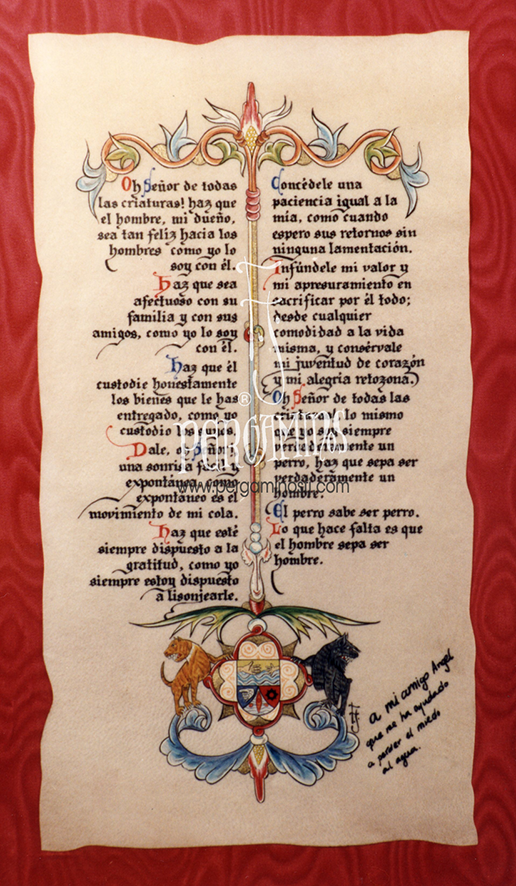 Oh Señor de todas
las criaturas! haz que
el hombre, mi dueño,
sea tan feliz hacia los
hombres como yo lo
soy con él.
Haz que sea
afectuoso con su
familia y con sus
amigos, como yo lo soy
con él.
Haz que él
custodie honestamente
los bienes que le has
entregado, como yo
custodio
Dale, oh Señor!
una sonrisa fácil y
expontánea, como
expontáneo es el
movimiento de mi cola.
Haz que esté
siempre dispuesto a la
gratitud, como yo
siempre estoy dispuesto
a lisonjearle.
Concédele una
paciencia igual a la
mía, como cuando
espero sus retornos sin
ninguna lamentación.
Infúndele mi valor y
mi apresuramiento en
sacrificar por él todo;
desde cualquier
comodidad a la vida
misma, y consérvale
mi juventud de corazón
y mi alegría retozona.
Oh Señor de todas las
criaturas! lo mismo
que yo soy siempre
verdaderamente un
perro, haz que sepa ser
verdaderamente un
hombre.
El perro sabe ser perro.
Lo que hace falta es que
el hombre sepa ser
hombre.
a mi amigo Angel
que me ha ayudado
a perder el miedo
al agua.
®
PERGAMINOS
www.pergaminosfj.com